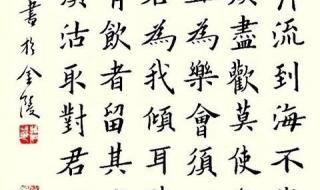 流到海不
盡歡莫使
為樂會須
為我傾耳
有飲者留其
沽取對君
書於金陵